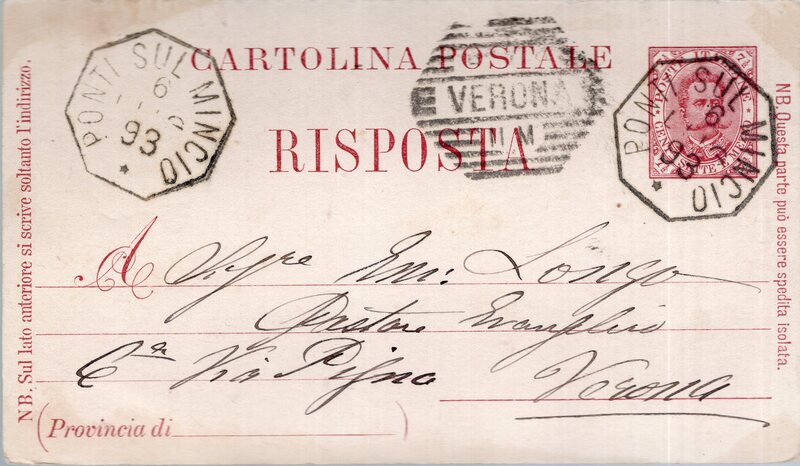 CARTOLINA POSTALE
RISPOSTA
PONTI SUL MINCIO
6
93
VERONA
PONTI SUL MINCIO
6
93
NB. Sul lato anteriore si scrive soltanto l'indirizzo.
NB. Questa parte può essere spedita isolata.
A Em: Longo
Pastore Evangelico
Via Pigna Verona
(Provincia di